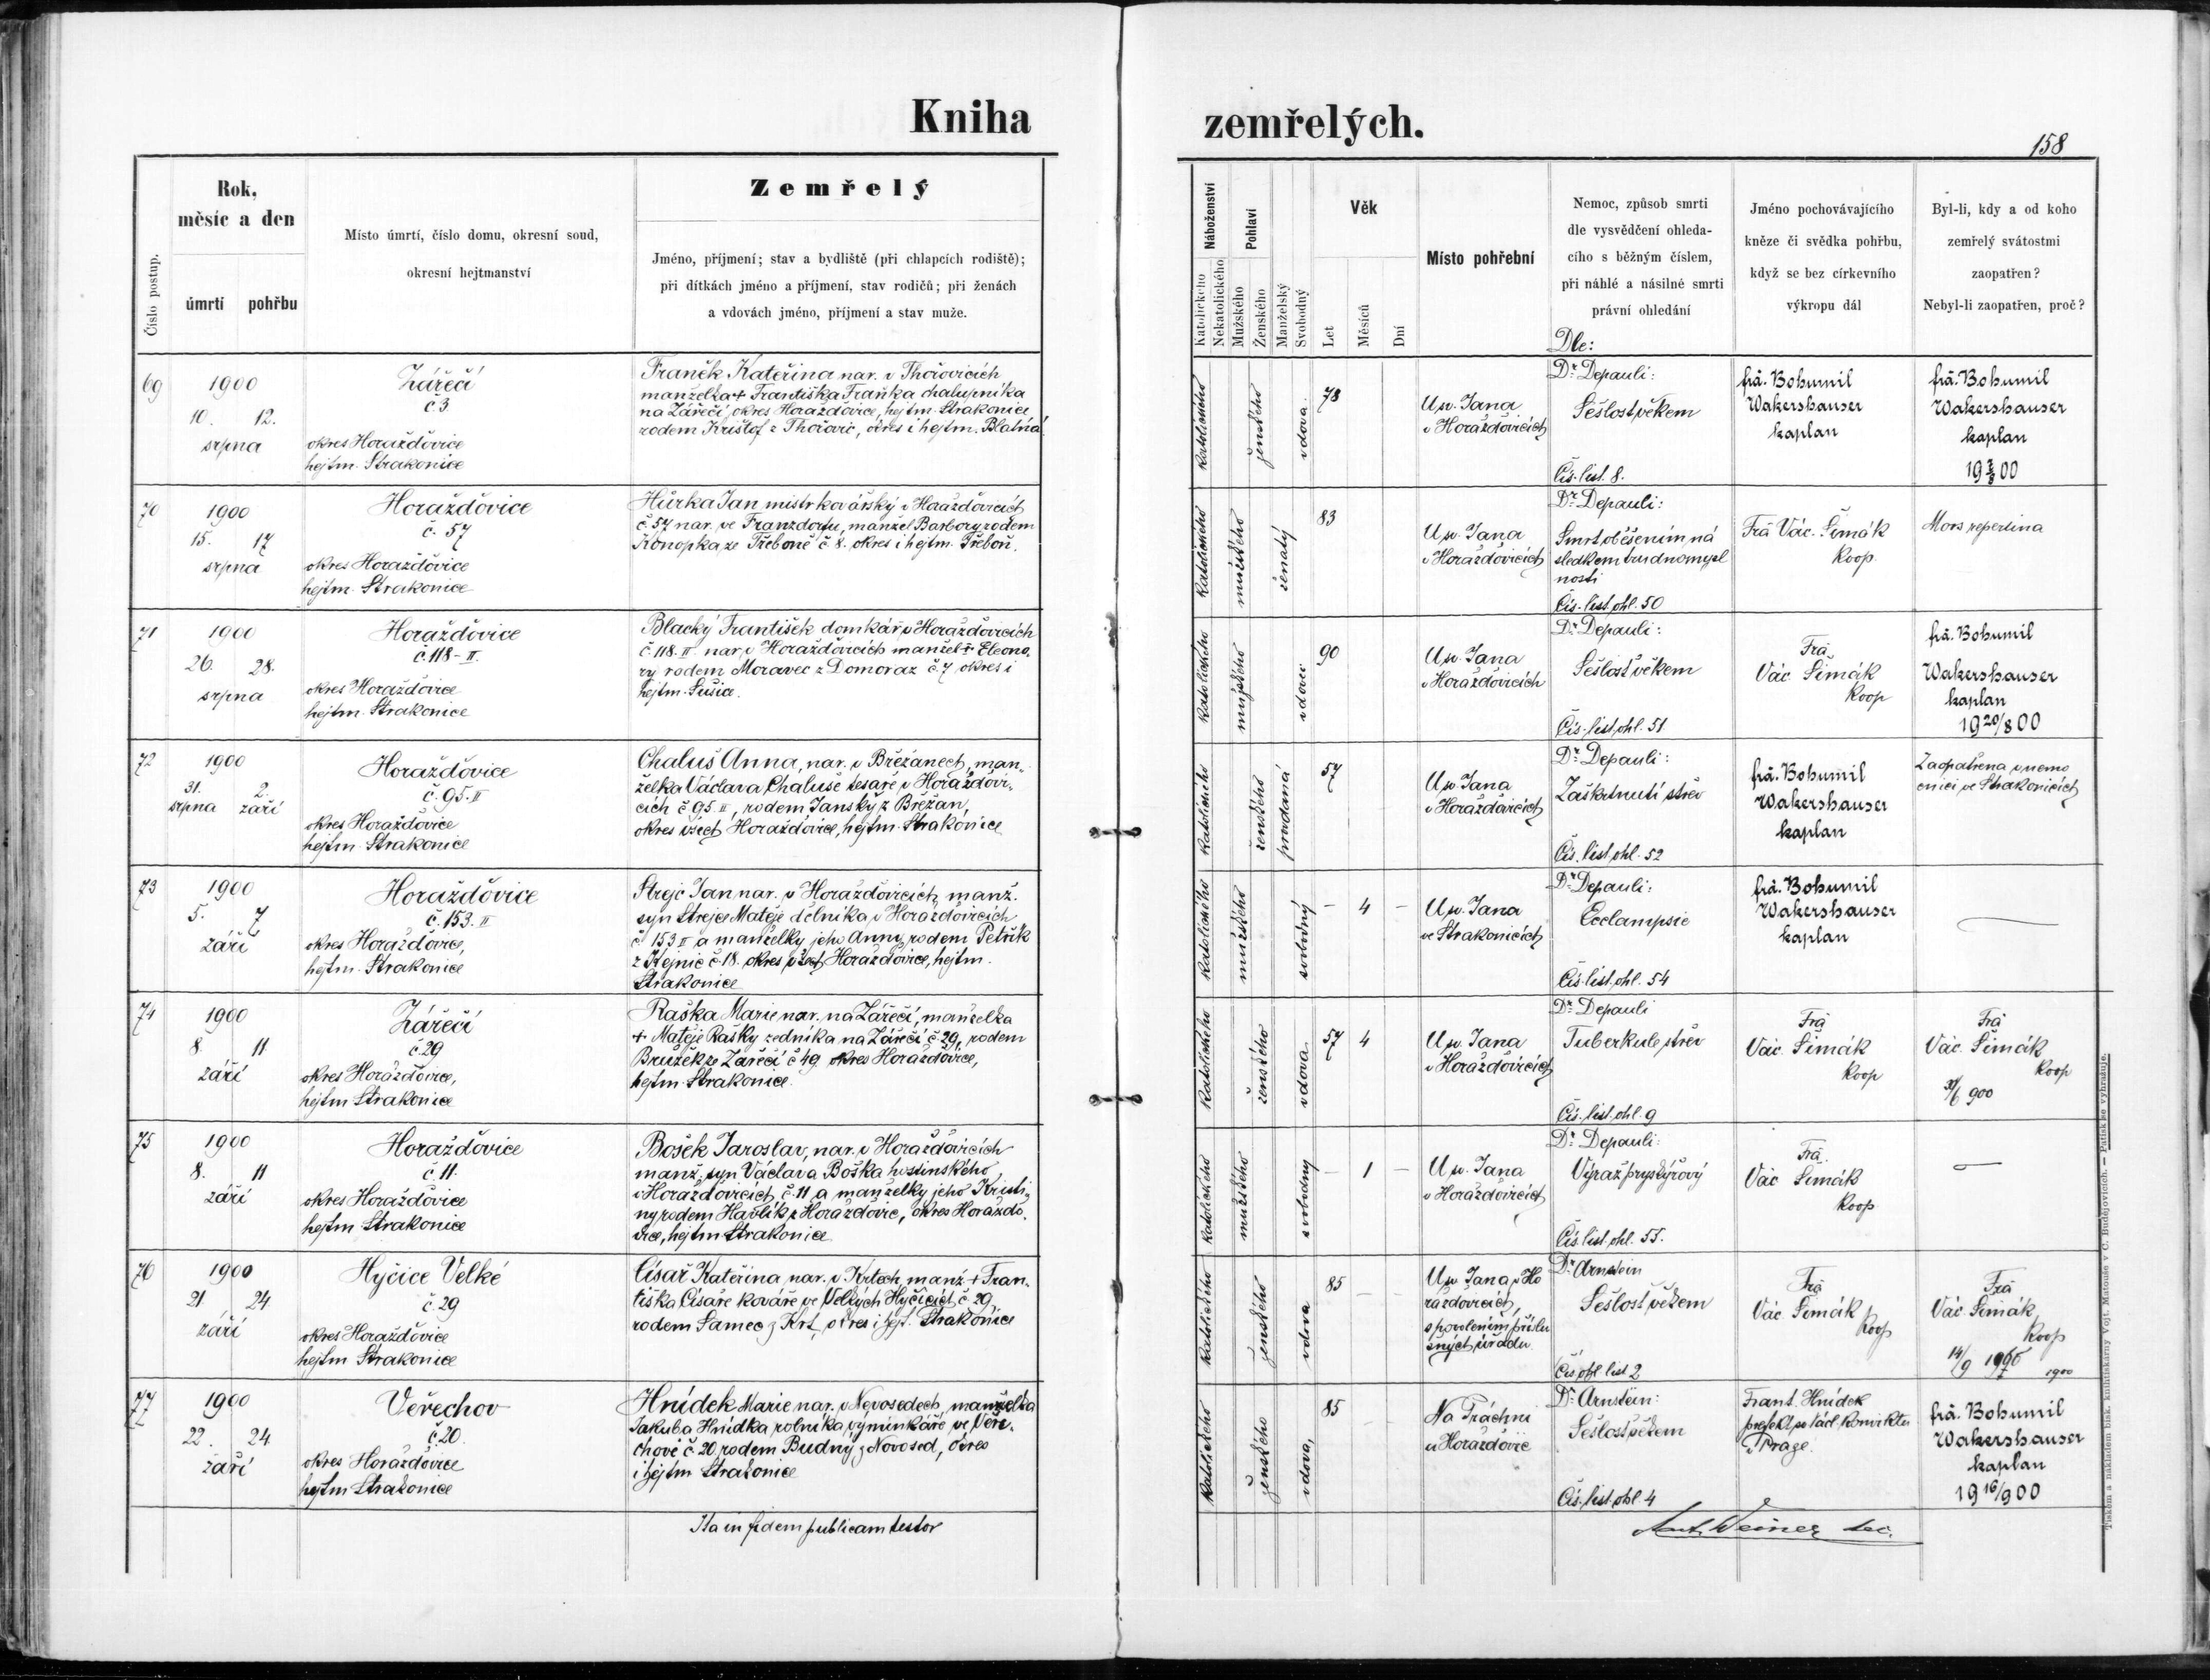 Kniha
zemřelých.
158
Číslo postup.
Rok,
měsíc a den
úmrtí pohřbu
Místo úmrtí, číslo domu, okresní soud,
okresní hejtmanství
Zemřelý
Jméno, příjmení; stav a bydliště (při chlapcích rodiště);
při dítkách jméno a příjmení, stav rodičů; při ženách
a vdovách jméno, příjmení a stav muže.
Náboženství
Katolického
Nekatolického
Pohlaví
Mužského
Ženského
Manželský
Svobodný
Věk
Let
Měsíců
Dní
Místo pohřební
Nemoc, způsob smrti
dle vysvědčení ohleda-
cího s běžným číslem,
při náhlé a násilné smrti
právní ohledání
Dle:
Jméno pochovávajícího
kněze či svědka pohřbu,
když se bez církevního
výkropu dál
Byl-li, kdy a od koho
zemřelý svátostmi
zaopatřen?
Nebyl-li zaopatřen, proč?
69
1900
10. 12.
srpna
Zářečí
č 3
okres Horažďovice
hejtm. Strakonice
Franěk Kateřina nar. v Thořovicích
manželka + Františka Fraňka chalupníka
na Zářečí, okres Horažďovice, hejtm. Strakonice
rodem Krištof z Thořovic, okres i hejtm. Blatná
katolického
ženského
vdova
78
U sv. Jana
v Horažďovicích
Dr. Depauli:
Sešlost věkem
Čís. list. 8.
frá. Bohumil
Wakershauser
kaplan
frá. Bohumil
Wakershauser
kaplan
19 7/8 00
70
1900
15. 17
srpna
Horažďovice
č. 57
okres Horažďovice
hejtm. Strakonice
Hůrka Jan mistr kovářský v Horažďovicích
č. 57 nar. ve Franzdorfu, manžel Barbory rodem
Konopka ze Třeboně č. 8. okres i hejtm. Třeboň.
katolického
mužského
ženatý
83
U sv. Jana
v Horažďovicích
Dr. Depauli:
Smrt oběšením ná
sledkem trudnomysl
nosti
Čís. list. ohl. 50
Frá Vác. Šimák
koop.
Mors repentina
71
1900
26. 28.
srpna
Horažďovice
č. 118 - II.
okres Horažďovice
hejtm. Strakonice
Blacký František domkář v Horažďovicích
č. 118. II nar. v Horažďovicích manžel + Eleono-
ry rodem Moravec z Domoraz č. 7 okres i
hejtm. Sušice.
katolického
mužského
vdovec
90
U sv. Jana
v Horažďovicích
Dr. Depauli:
Sešlost věkem
Čís. list. ohl. 51
Frá
Vác. Šimák
koop
frá. Bohumil
Wakershauser
kaplan
19 20/8 00
72
1900
31. 2.
srpna září
Horažďovice
č. 95. II
okres Horažďovice
hejtm. Strakonice
Chaluš Anna, nar. v Břežanech, man-
želka Václava Chaluše tesaře v Horažďovi-
cích č 95 II, rodem Janský z Břežan,
okres všech Horažďovice, hejtm. Strakonice
katolického
ženského
provdaná
57
U sv. Jana
v Horažďovicích
Dr. Depauli:
Zaškrtnutí střev
Čís. list. ohl. 52
frá. Bohumil
Wakershauser
kaplan
Zaopatřena v nemo
cnici ve Strakonicích
73
1900
5. 7
září
Horažďovice
č. 153. II
okres Horažďovice,
hejtm. Strakonice
Strejc Jan nar. v Horažďovicích, manž.
syn Strejce Matěje dělníka v Horažďovicích
č 153 II a manželky jeho Anny, rodem Petřík
z Hejnic č. 18. okres všech Horažďovice, hejtm.
Strakonice
katolického
mužského
svobodný
– 4 –
U sv. Jana
ve Strakonicích
Dr. Depauli:
Ecclampsie
Čís. list. ohl. 54
frá. Bohumil
Wakershauser
kaplan
—
74
1900
8 11
září
Zářečí
č. 29
okres Horažďovice,
hejtm Strakonice
Raška Marie nar. na Zářečí, manželka
+ Matěje Rašky zedníka na Zářečí č. 29, rodem
Brůžek ze Zářečí č 49 okres Horažďovice,
hejtm. Strakonice.
katolického
ženského
vdova
57 4
U sv. Jana
v Horažďovicích
Dr. Depauli
Tuberkule střev
Čís. list. ohl. 9
Frá
Vác. Šimák
koop
Frá
Vác. Šimák
koop
900
75
1900
8. 11
září
Horažďovice
č. 11.
okres Horažďovice
hejtm. Strakonice
Bošek Jaroslav, nar. v Horažďovicích
manž. syn Václava Boška hostinského
v Horažďovicích č. 11 a manželky jeho Kristi-
ny rodem Havlík z Horažďovic, okres Horažďo-
vice, hejtm Strakonice
katolického
mužského
svobodný
– 1 –
U sv. Jana
v Horažďovicích
Dr. Depauli:
Výraz pryskýřový
Čís. list. ohl. 55.
Frá.
Vác Šimák
koop
—
76
1900
21 24
září
Hyčice Velké
č. 29
okres Horažďovice
hejtm Strakonice
Císař Kateřina nar. v Krtech, manž + Fran-
tiška Císaře kováře ve Velkých Hyčicích č. 29,
rodem Samec z Krt, okres i hejt. Strakonice
katolického
ženského
vdova
85
U sv. Jana v Ho
ražďovicích,
s povolením příslu
šných úřadů.
Dr. Arnstein
Sešlost věkem
Čís. ohl. list 2
Frá
Vác. Šimák
koop
Frá
Vác Šimák
koop
14/9 1900
1900
77
1900
22. 24
září
Veřechov
č. 20.
okres Horažďovice
hejtm Strakonice
Hnídek Marie nar. v Novosedech, manželka
Jakuba Hnídka rolníka, výminkáře ve Veře-
chově č. 20, rodem Budný z Novosed, okres
i hejtm Strakonice
katolického
ženského
vdova,
85
Na Práchni
u Horažďovic
Dr. Arnstein:
Sešlost věkem
Čís. list. ohl. 4
Frant. Hnídek
prefekt konviktu
v Praze.
frá. Bohumil
Wakershauser
kaplan
19 16/9 00
Ita in fidem publicam testor
Weiner
Tiskem a nákladem bisk. knihtiskárny Vojt. Matouše v Č. Budějovicích. — Patisk se vyhražuje.